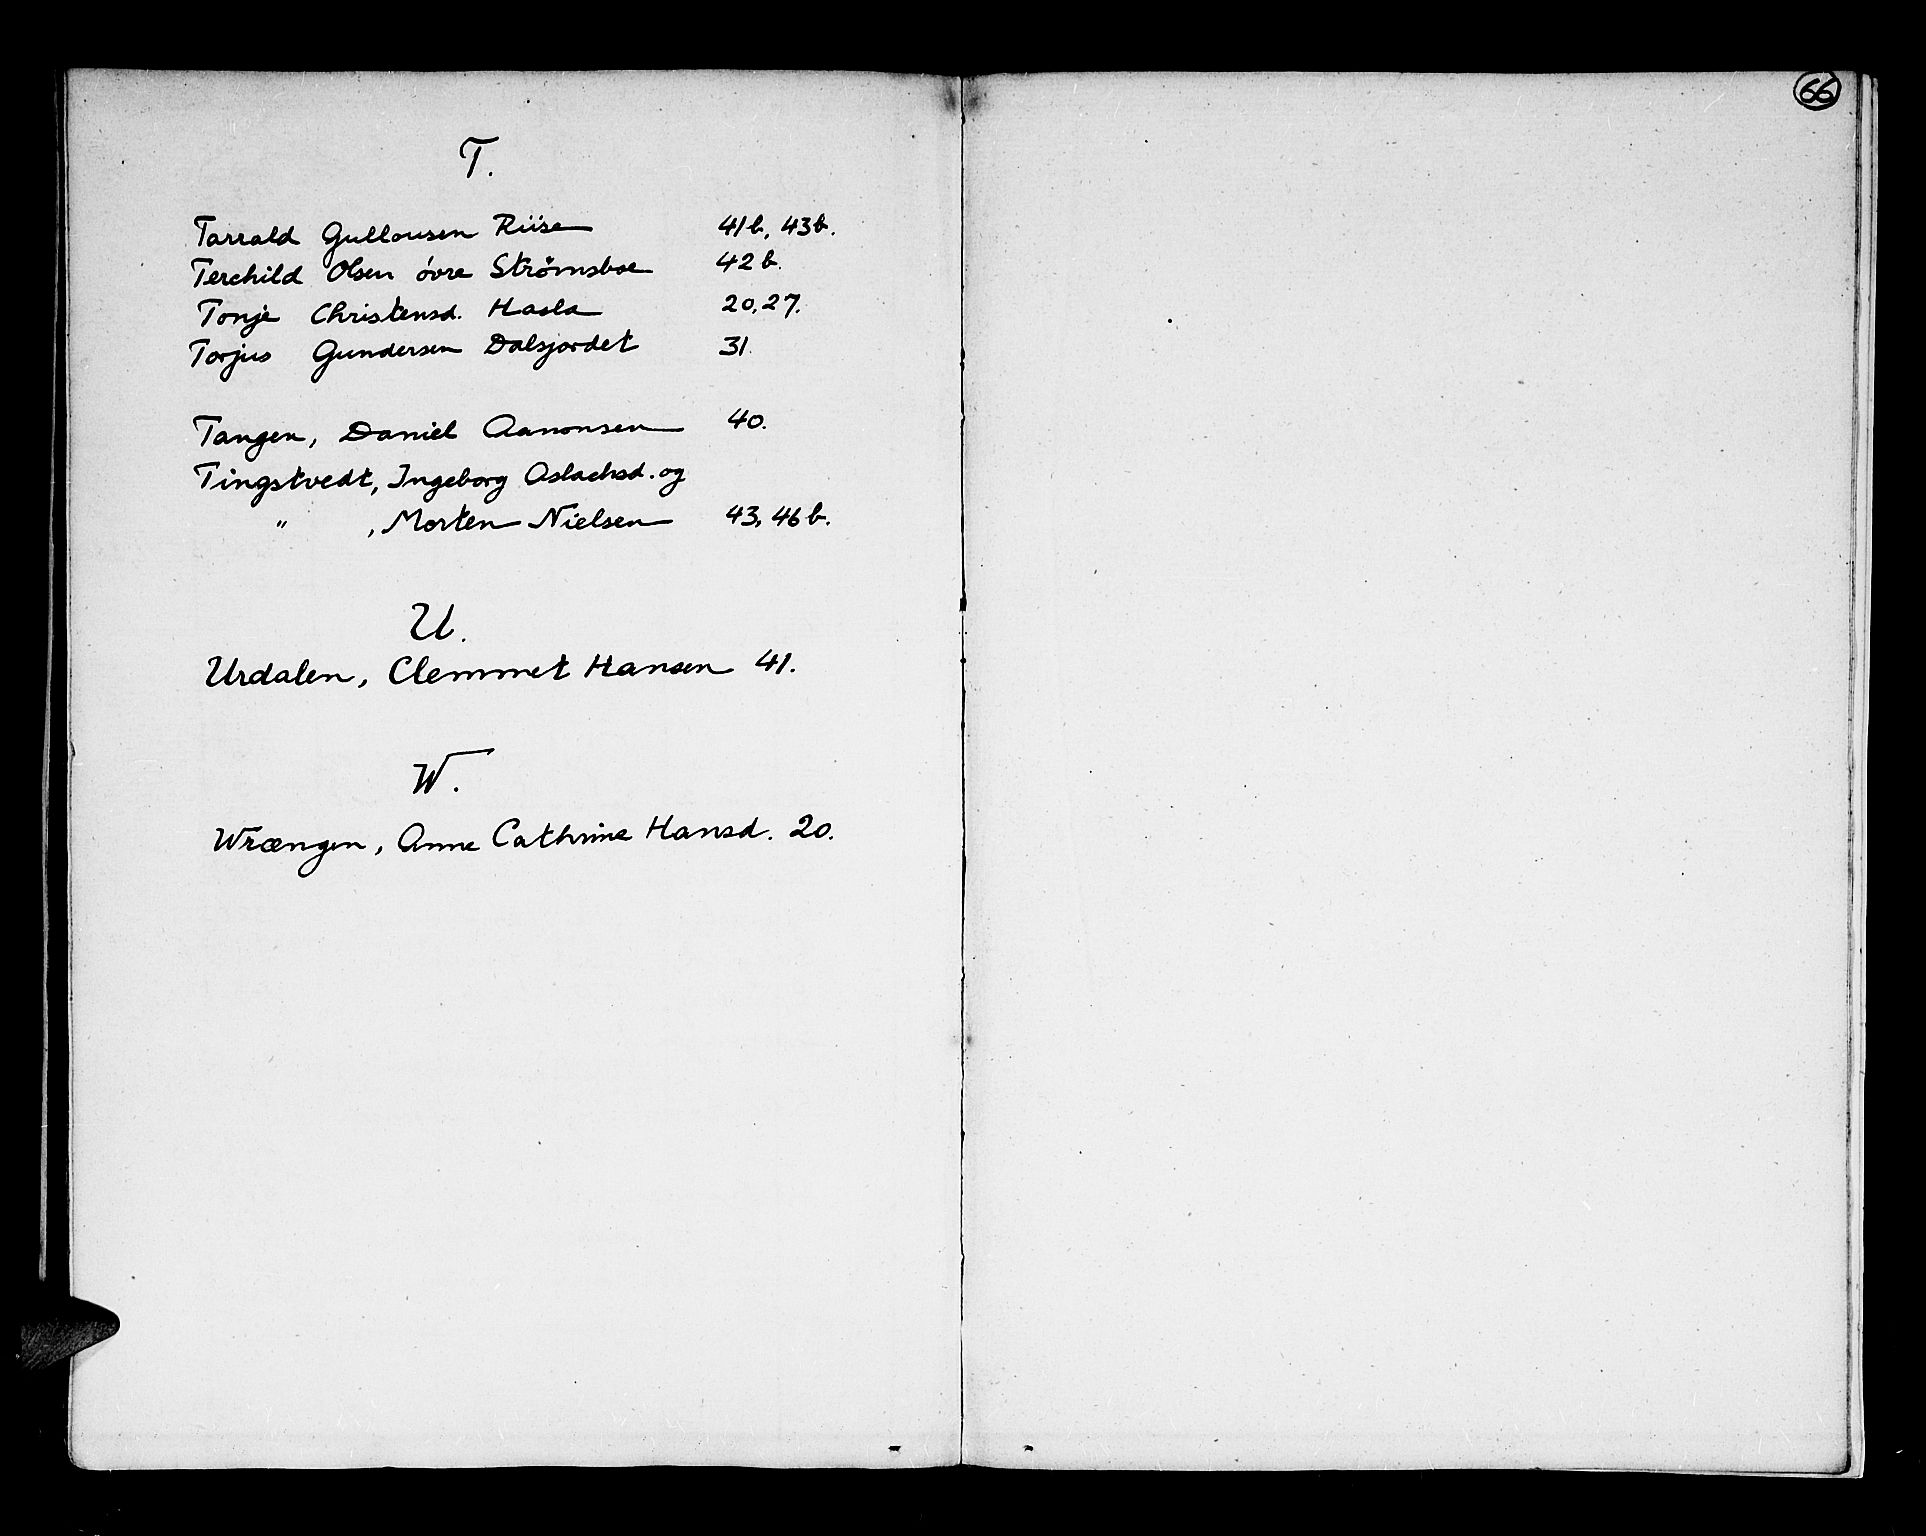 T.
Tarrald Gullousen Riise 41b, 43b.
Terchild Olsen övre Strömsboe 42b.
Tonje Christensd. Hasla 20, 27.
Torjus Gundersen Dalsjordet 31.
Tangen, Daniel Aanonsen 40.
Tingstvedt, Ingeborg Aslachsd. og
" , Morten Nielsen 43, 46b.
U.
Urdalen, Clemmet Hansen 41.
W.
Wrængen, Anne Cathrine Hansd. 20.
66